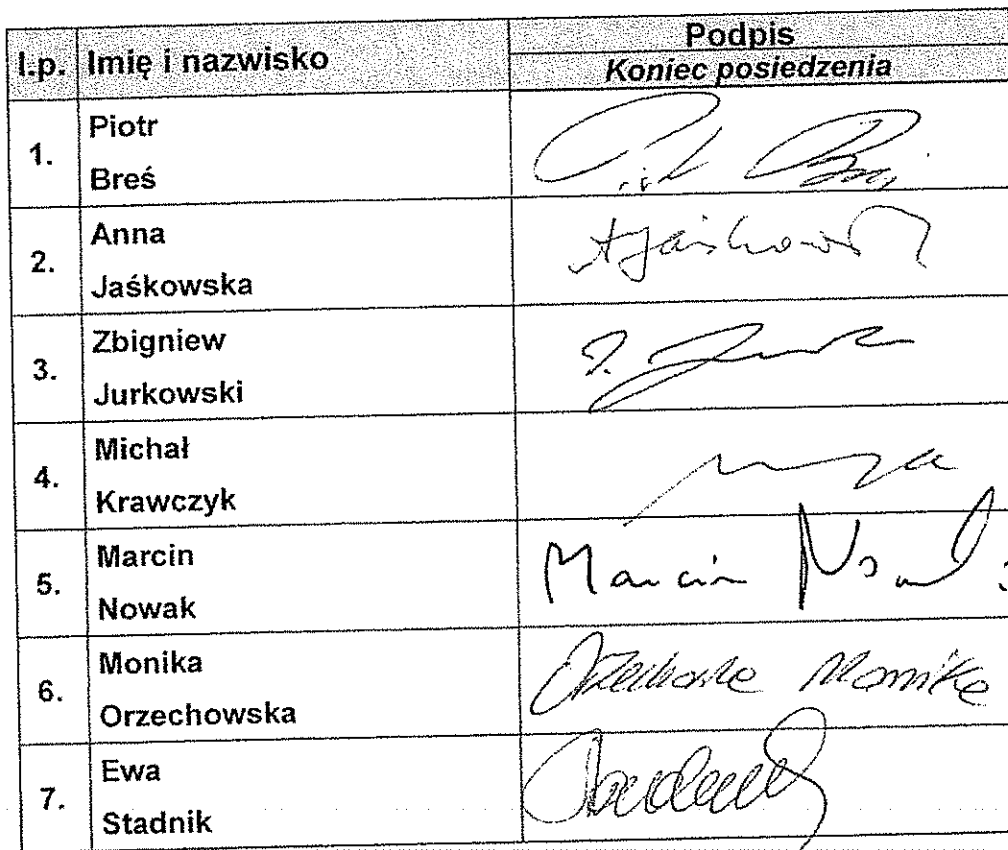 l.p. Imię i nazwisko Podpis
Koniec posiedzenia
1. Piotr
Breś
2. Anna
Jaśkowska
AJaśkowska
3. Zbigniew
Jurkowski
4. Michał
Krawczyk
5. Marcin
Nowak
Marcin Nowak
6. Monika
Orzechowska
Orzechowska Monika
7. Ewa
Stadnik